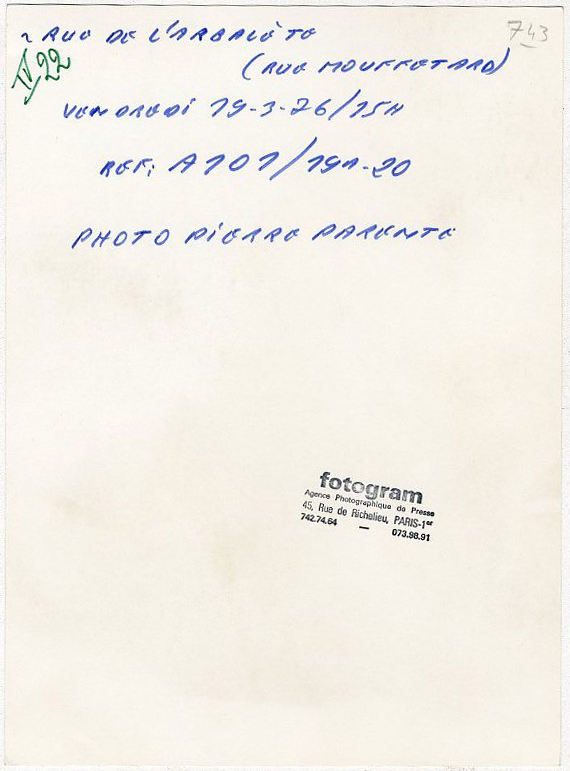 743
~ RUE DE L'ARBALÈTE
(RUE MOUFFETARD)
IV/22
VENDREDI 19-3-76/15H
REF: A101/19A-20
PHOTO PIERRE PARENTE
fotogram
Agence Photographique de Presse
45, Rue de Richelieu, PARIS-1er
742.74.64 — 073.98.91